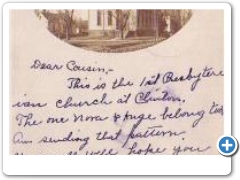 Dear Cousin,-
This is the 1st Presbyter
ian church at Clinton.
The one Nora & Inge belong to,
Am sending that pattern.
hope you